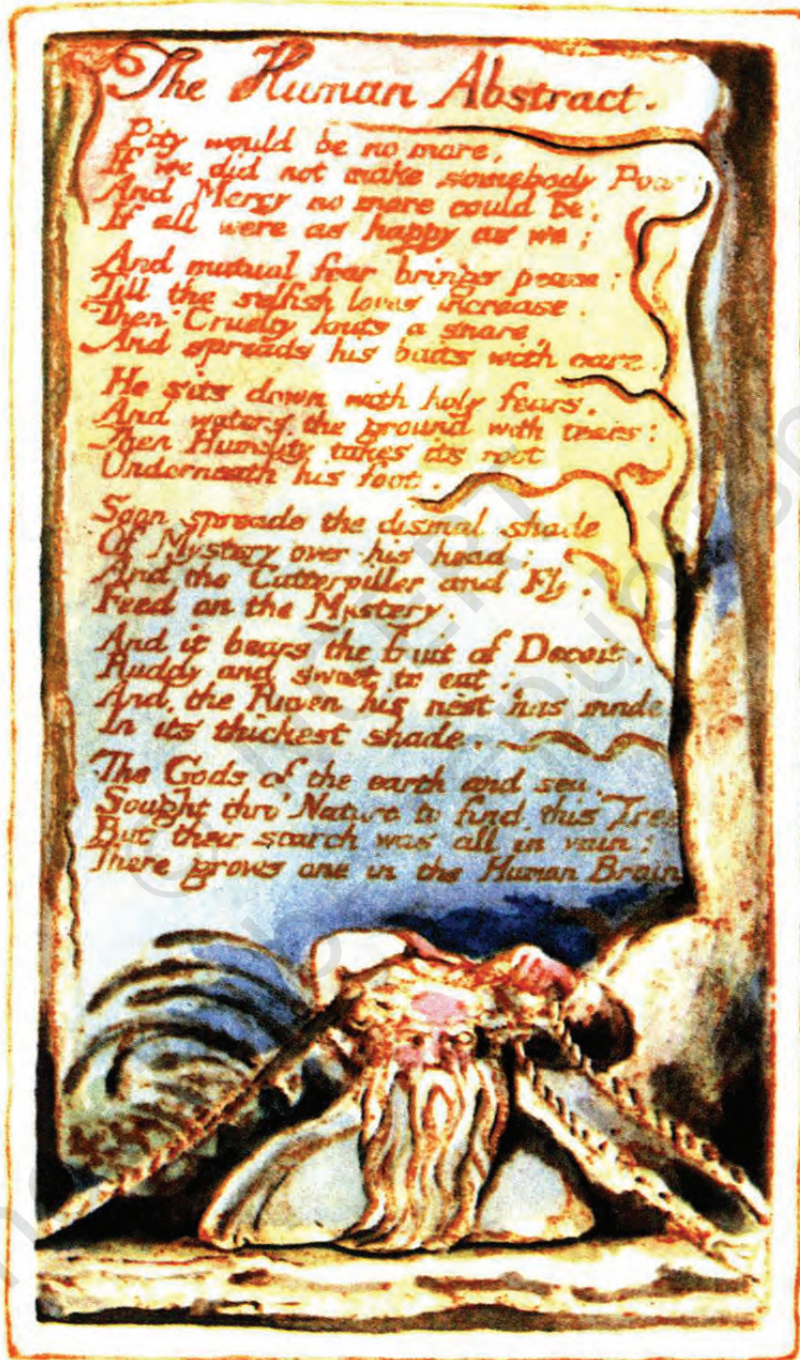 The Human Abstract.
Pity would be no more,
If we did not make somebody Poor:
And Mercy no more could be,
If all were as happy as we;
And mutual fear brings peace:
Till the selfish loves increase.
Then Cruelty knits a snare,
And spreads his baits with care.
He sits down with holy fears,
And waters the ground with tears:
Then Humility takes its root
Underneath his foot.
Soon spreads the dismal shade
Of Mystery over his head;
And the Catterpiller and Fly,
Feed on the Mystery.
And it bears the fruit of Deceit,
Ruddy and sweet to eat;
And the Raven his nest has made
In its thickest shade.
The Gods of the earth and sea,
Sought thro' Nature to find this Tree
But their search was all in vain;
There grows one in the Human Brain